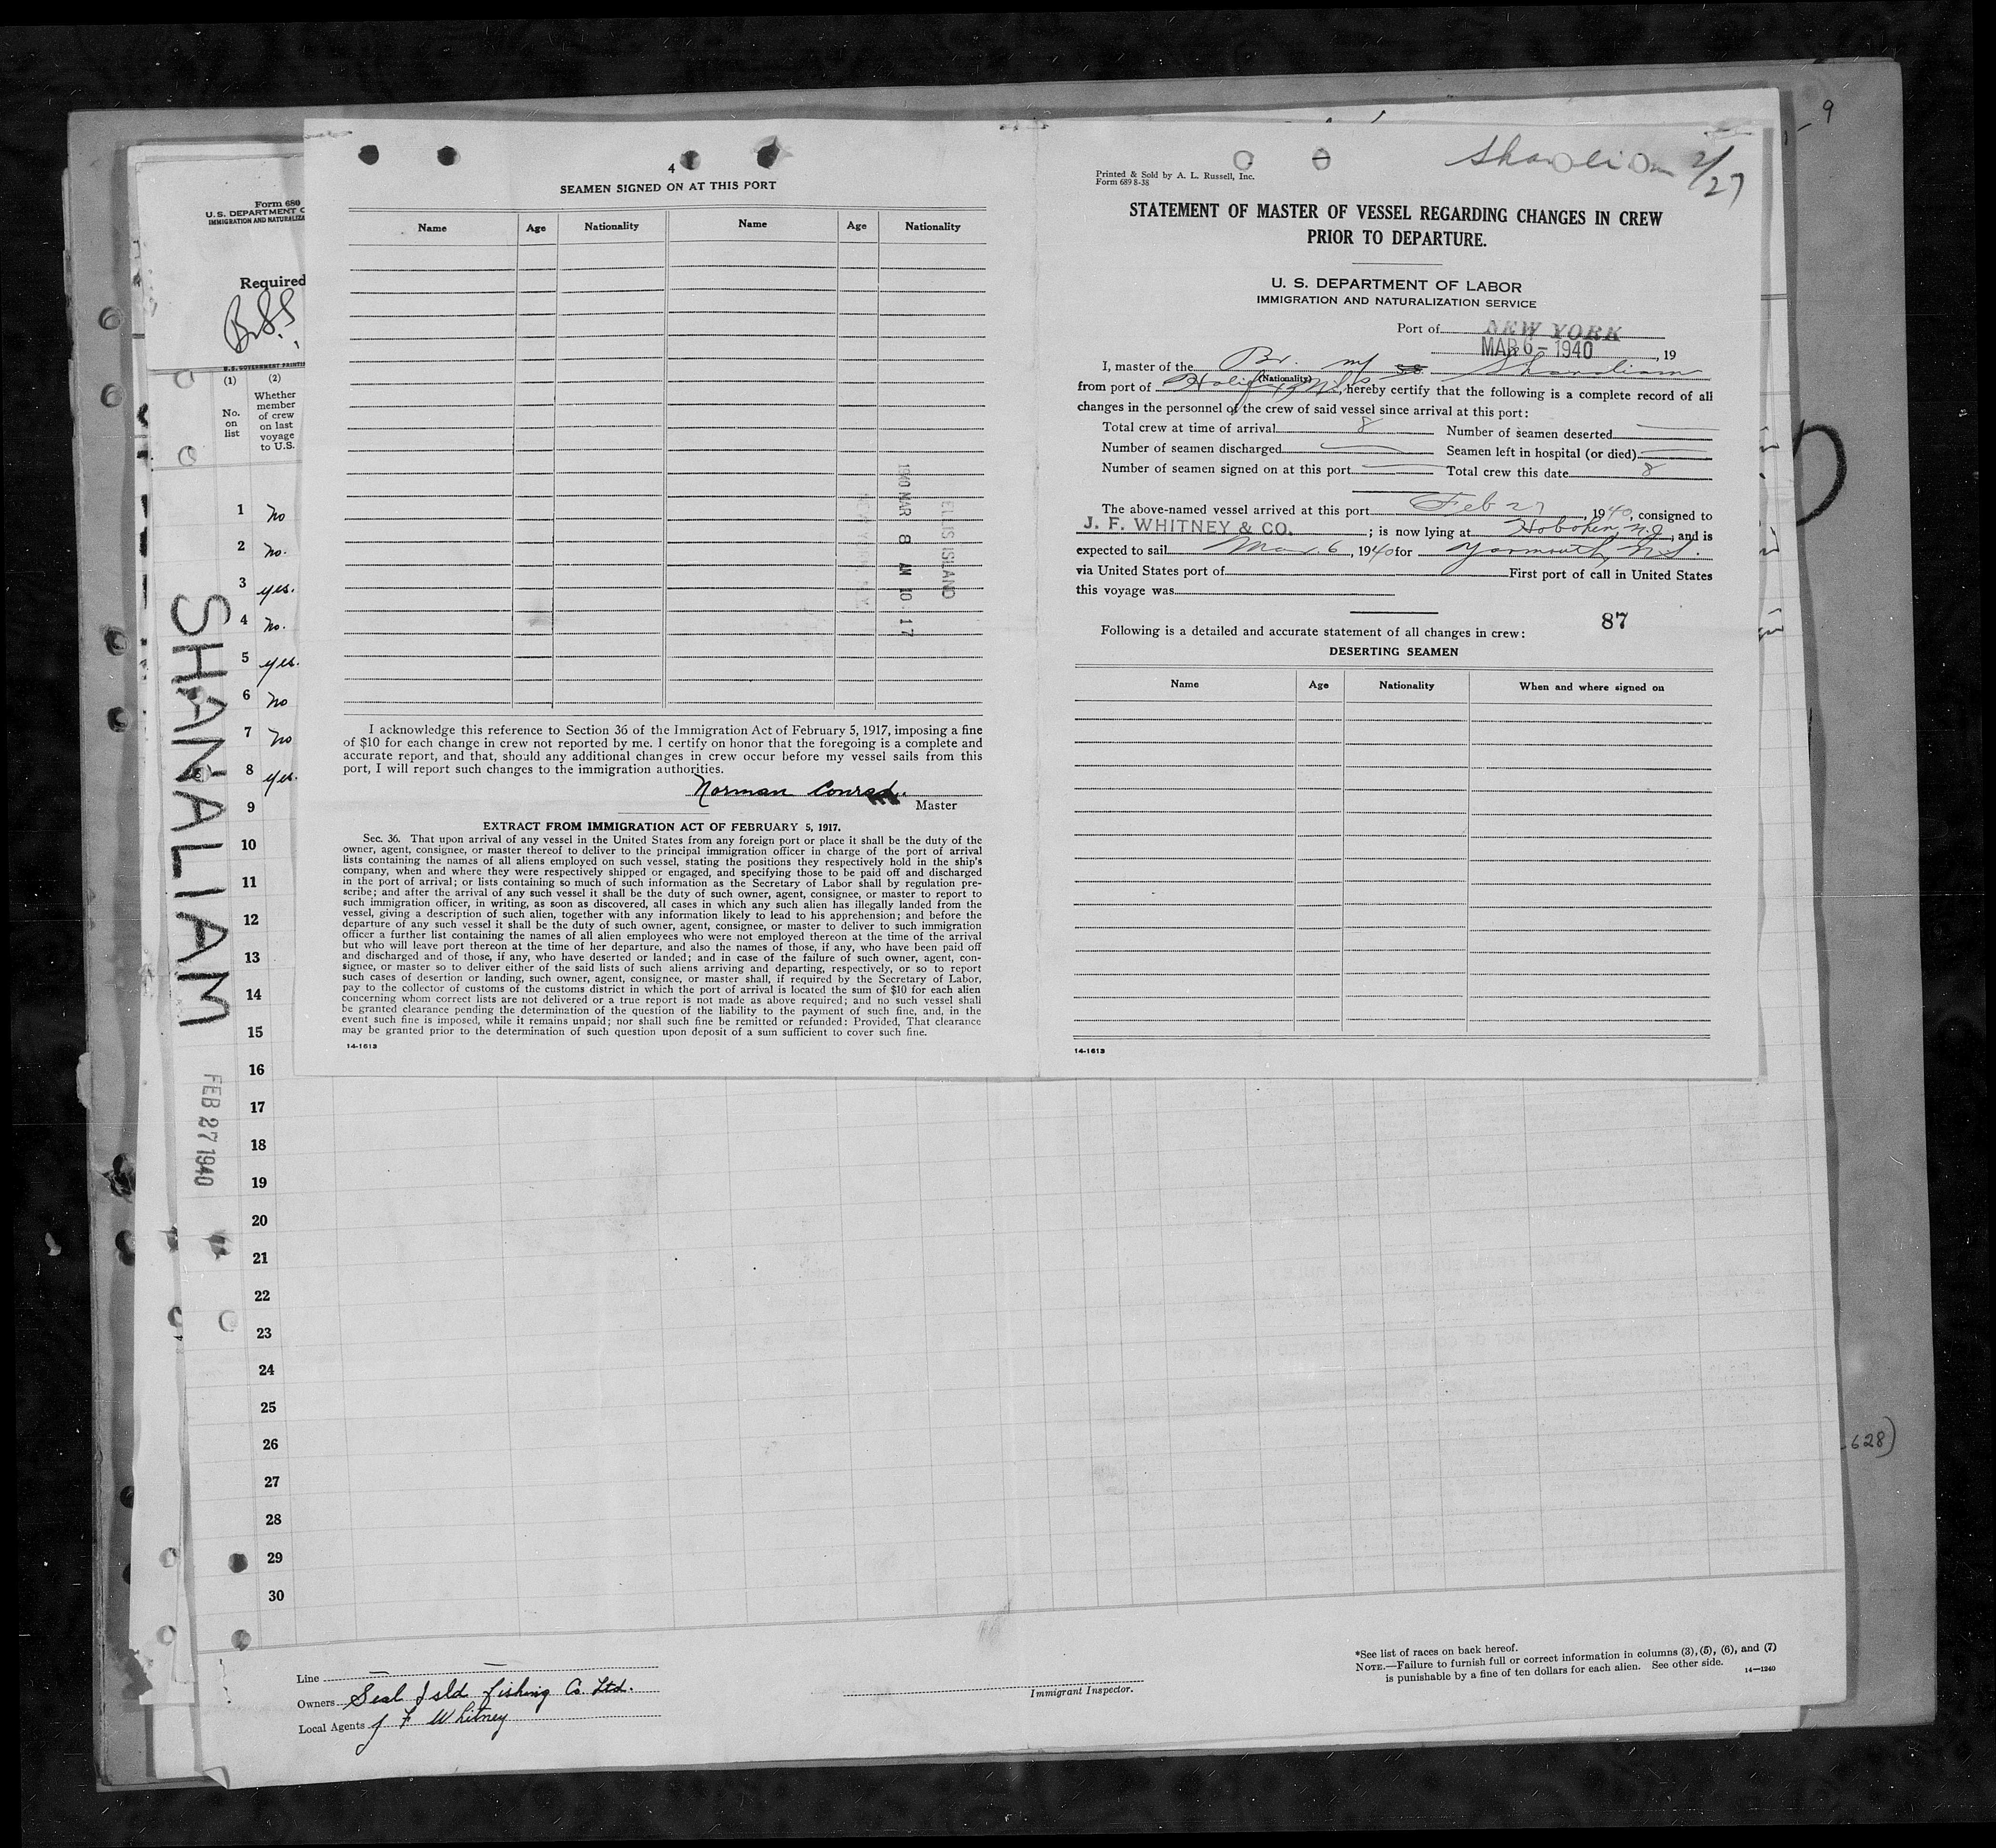 9
Form 680
U. S. DEPARTMENT O
IMMIGRATION AND NATURALIZA
Required
U. S. GOVERNMENT PRINTI
(1) (2)
No. on list
Whether member of crew on last voyage to U.S.
1 no
2 no.
3 yes.
4 no.
5 yes.
6 no
7 no
8 yes.
9
10
11
12
13
14
15
16
17
18
19
20
21
22
23
24
25
26
27
28
29
30
SHANALIAM
FEB 27 1940
4
SEAMEN SIGNED ON AT THIS PORT
Name Age Nationality Name Age Nationality
1940 MAR 8 AM 10 17
ELLIS ISLAND
I acknowledge this reference to Section 36 of the Immigration Act of February 5, 1917, imposing a fine
of $10 for each change in crew not reported by me. I certify on honor that the foregoing is a complete and
accurate report, and that, should any additional changes in crew occur before my vessel sails from this
port, I will report such changes to the immigration authorities.
Norman Conrad.
Master
EXTRACT FROM IMMIGRATION ACT OF FEBRUARY 5, 1917.
Sec. 36. That upon arrival of any vessel in the United States from any foreign port or place it shall be the duty of the
owner, agent, consignee, or master thereof to deliver to the principal immigration officer in charge of the port of arrival
lists containing the names of all aliens employed on such vessel, stating the positions they respectively hold in the ship's
company, when and where they were respectively shipped or engaged, and specifying those to be paid off and discharged
in the port of arrival; or lists containing so much of such information as the Secretary of Labor shall by regulation pre-
scribe; and after the arrival of any such vessel it shall be the duty of such owner, agent, consignee, or master to report to
such immigration officer, in writing, as soon as discovered, all cases in which any such alien has illegally landed from the
vessel, giving a description of such alien, together with any information likely to lead to his apprehension; and before the
departure of any such vessel it shall be the duty of such owner, agent, consignee, or master to deliver to such immigration
officer a further list containing the names of all alien employees who were not employed thereon at the time of the arrival
but who will leave port thereon at the time of her departure, and also the names of those, if any, who have been paid off
and discharged and of those, if any, who have deserted or landed; and in case of the failure of such owner, agent, con-
signee, or master so to deliver either of the said lists of such aliens arriving and departing, respectively, or so to report
such cases of desertion or landing, such owner, agent, consignee, or master shall, if required by the Secretary of Labor,
pay to the collector of customs of the customs district in which the port of arrival is located the sum of $10 for each alien
concerning whom correct lists are not delivered or a true report is not made as above required; and no such vessel shall
be granted clearance pending the determination of the question of the liability to the payment of such fine, and, in the
event such fine is imposed, while it remains unpaid; nor shall such fine be remitted or refunded: Provided, That clearance
may be granted prior to the determination of such question upon deposit of a sum sufficient to cover such fine.
14-1613
2/27
Printed & Sold by A. L. Russell, Inc.
Form 689 8-38
STATEMENT OF MASTER OF VESSEL REGARDING CHANGES IN CREW
PRIOR TO DEPARTURE.
U. S. DEPARTMENT OF LABOR
IMMIGRATION AND NATURALIZATION SERVICE
Port of NEW YORK
MAR 6 - 1940, 19
I, master of the Br. M/ S.S. Shanaliam
(Nationality)
from port of Halifax, N.S., hereby certify that the following is a complete record of all
changes in the personnel of the crew of said vessel since arrival at this port:
Total crew at time of arrival 8 Number of seamen deserted
Number of seamen discharged Seamen left in hospital (or died)
Number of seamen signed on at this port Total crew this date 8
The above-named vessel arrived at this port Feb 27, 1940, consigned to
J. F. WHITNEY & CO.; is now lying at Hoboken, N.J., and is
expected to sail Mar. 6, 1940 for Yarmouth, N.S.
via United States port of First port of call in United States
this voyage was
87
Following is a detailed and accurate statement of all changes in crew:
DESERTING SEAMEN
Name Age Nationality When and where signed on
14-1613
628)
Line
Owners Seal Isld Fishing Co. Ltd.
Local Agents J F Whitney
Immigrant Inspector.
*See list of races on back hereof.
NOTE.—Failure to furnish full or correct information in columns (3), (5), (6), and (7)
is punishable by a fine of ten dollars for each alien. See other side. 14—1240